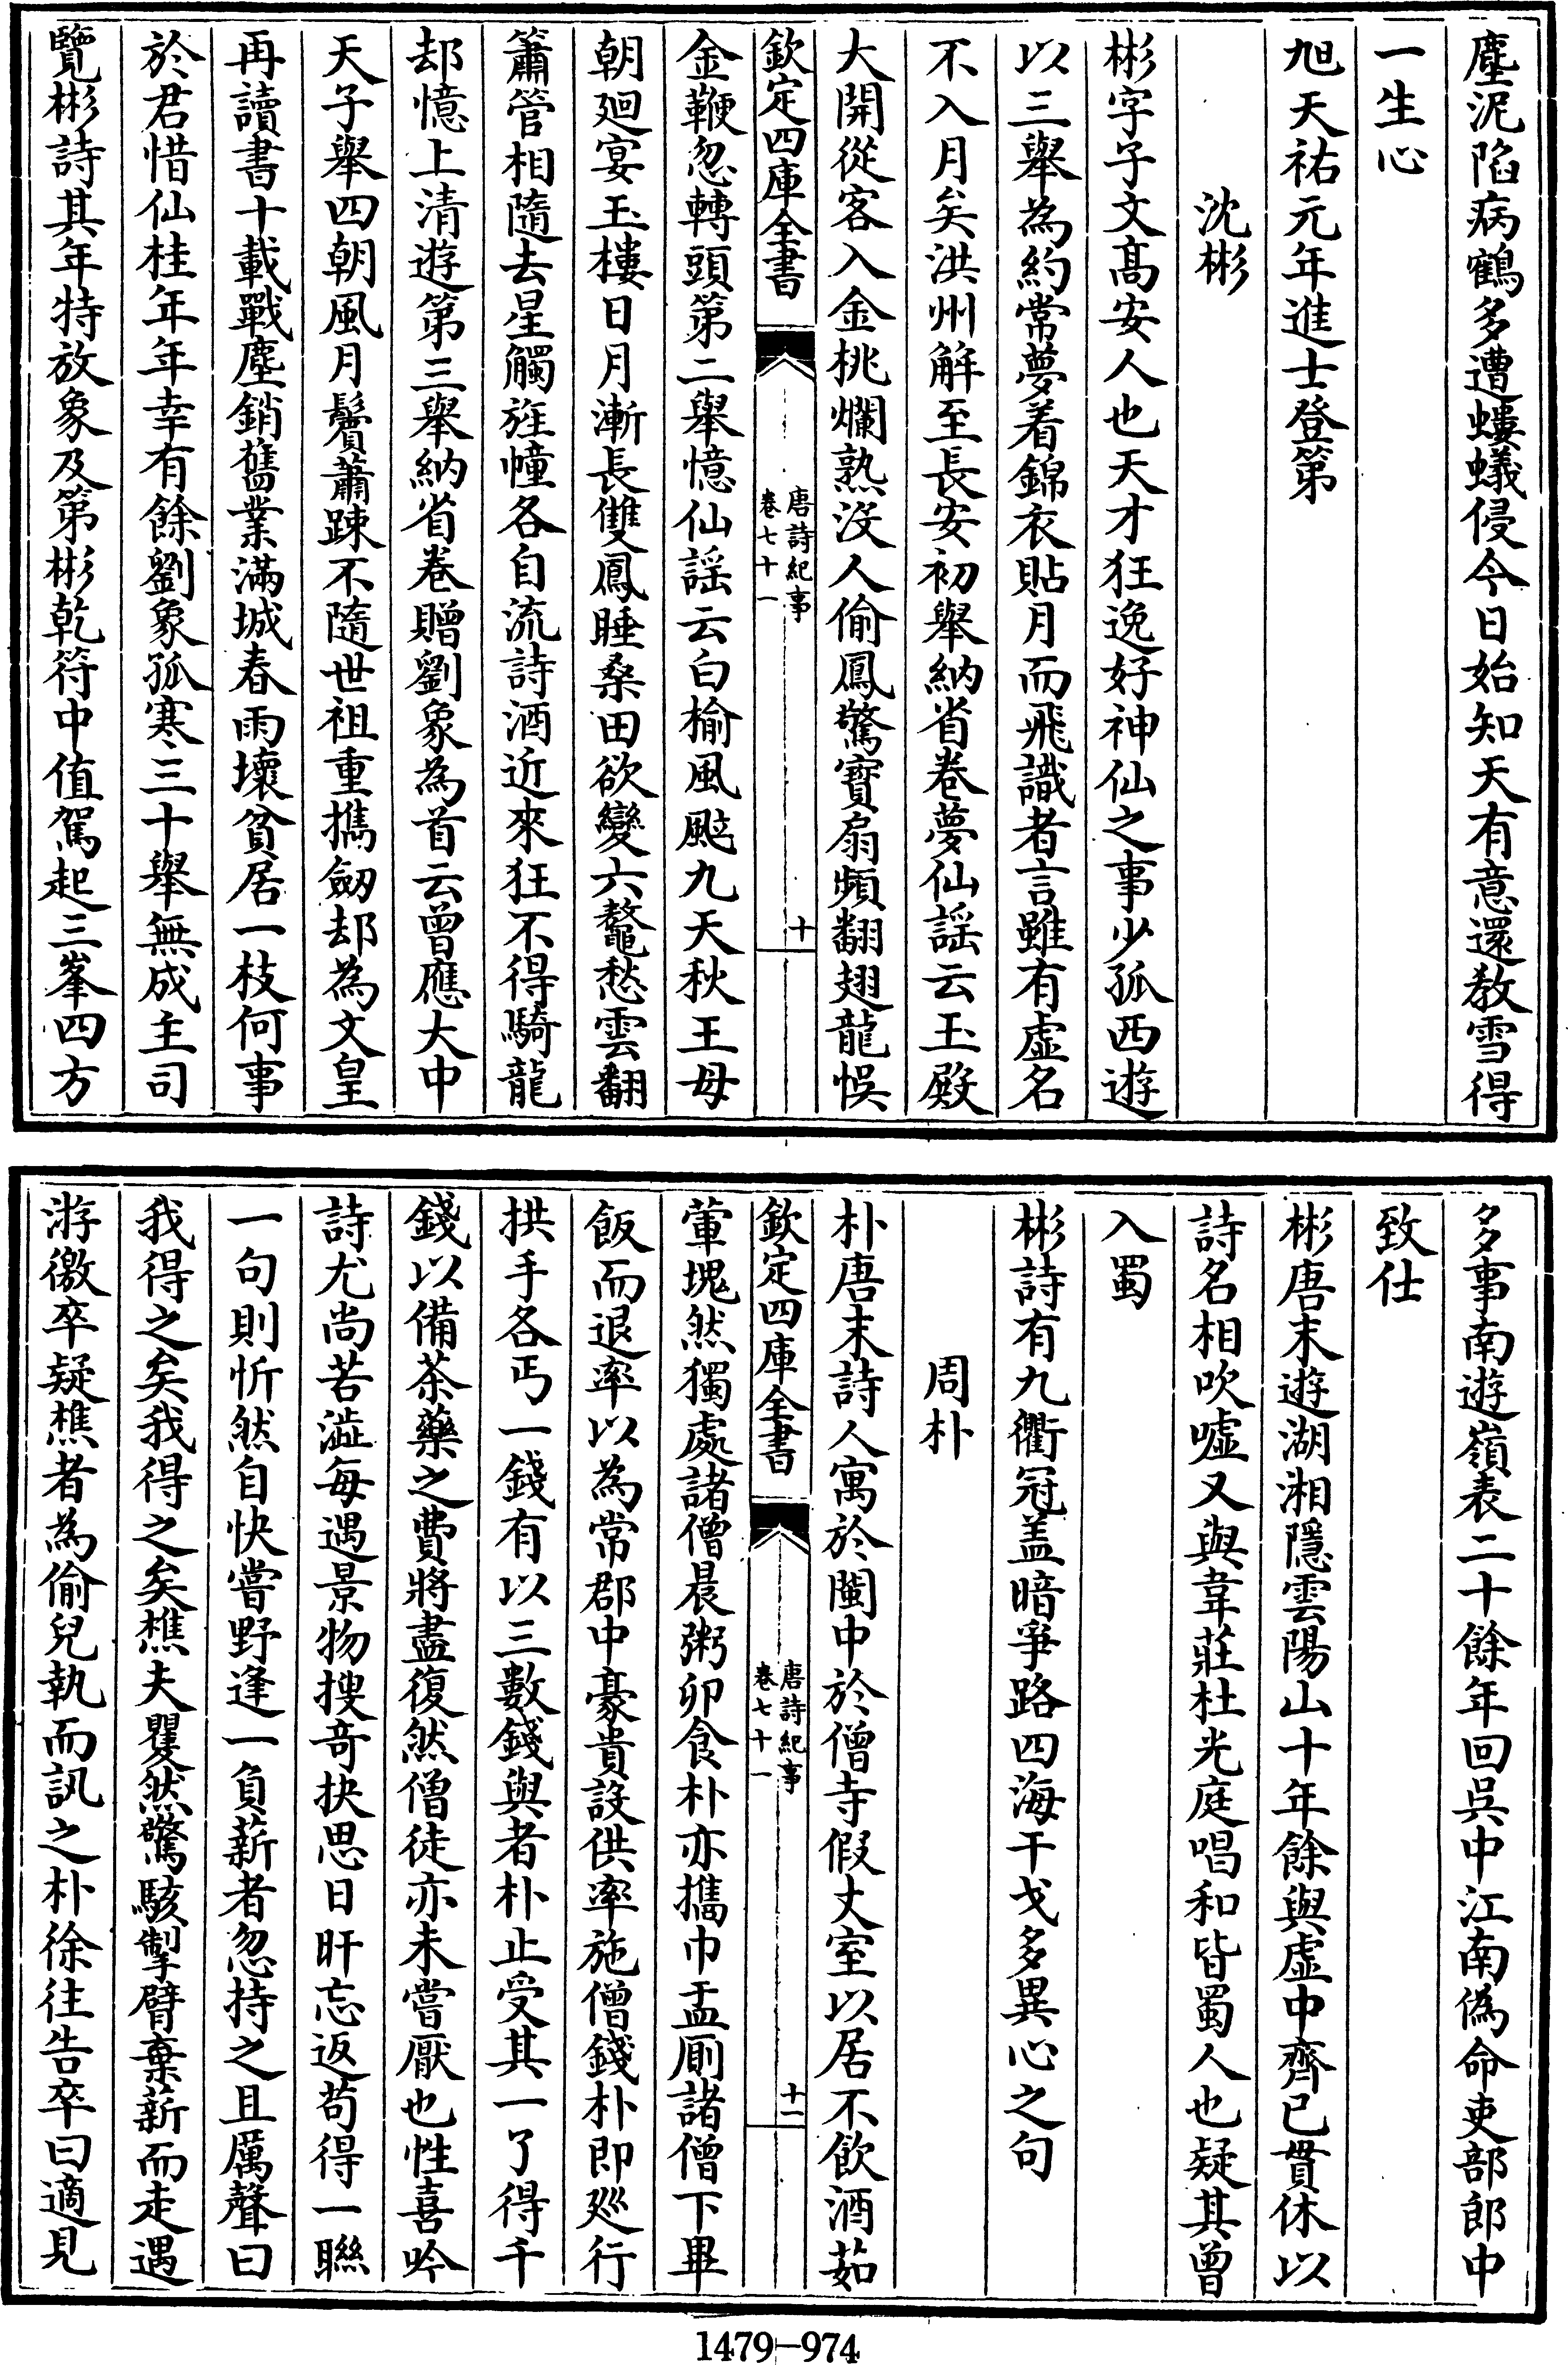 塵泥陷病鶴多遭螻蟻侵今日始知天有意還教雪得
一生心
旭天祐元年進士登第
沈彬
彬字子文髙安人也天才狂逸好神仙之事少孤西遊
以三舉為約常夢着錦衣貼月而飛識者言雖有虚名
不入月矣洪州解至長安初舉納省卷夢仙謡云玉殿
大開從客入金桃爛熟没人偷鳳驚寳扇頻翻翅龍悞
欽定四庫全書
唐詩紀事
卷七十一
十
金鞭忽轉頭第二舉憶仙謡云白榆風颭九天秋王母
朝廻宴玉樓日月漸長雙鳳睡桑田欲變六鼇愁雲翻
簫管相隨去星觸旌幢各自流詩酒近來狂不得騎龍
却憶上清遊第三舉納省卷贈劉象為首云曽應大中
天子舉四朝風月鬢蕭踈不隨世祖重擕劒却為文皇
再讀書十載戰塵銷舊業滿城春雨壞貧居一枝何事
於君惜仙桂年年幸有餘劉象孤寒三十舉無成主司
覽彬詩其年特放象及第彬乾符中值駕起三峯四方
多事南遊嶺表二十餘年回呉中江南偽命吏部郎中
致仕
彬唐末遊湖湘隱雲陽山十年餘與虚中齊已貫休以
詩名相吹嘘又與韋莊杜光庭唱和皆蜀人也疑其曽
入蜀
彬詩有九衢冠盖暗爭路四海干戈多異心之句
周朴
朴唐末詩人寓於閩中於僧寺假丈室以居不飲酒茹
欽定四庫全書
唐詩紀事
卷七十一
十一
葷塊然獨處諸僧晨粥卯食朴亦擕巾盂厠諸僧下畢
飯而退率以為常郡中豪貴設供率施僧錢朴即廵行
拱手各丐一錢有以三數錢與者朴止受其一了得千
錢以備茶藥之費將盡復然僧徒亦未嘗厭也性喜吟
詩尤尚苦澁每遇景物搜奇抉思日旰忘返茍得一聯
一句則忻然自快嘗野逢一負薪者忽持之且厲聲曰
我得之矣我得之矣樵夫矍然驚駭掣臂棄薪而走遇
游徼卒疑樵者為偷兒執而訊之朴徐徃告卒曰適見
1479-974